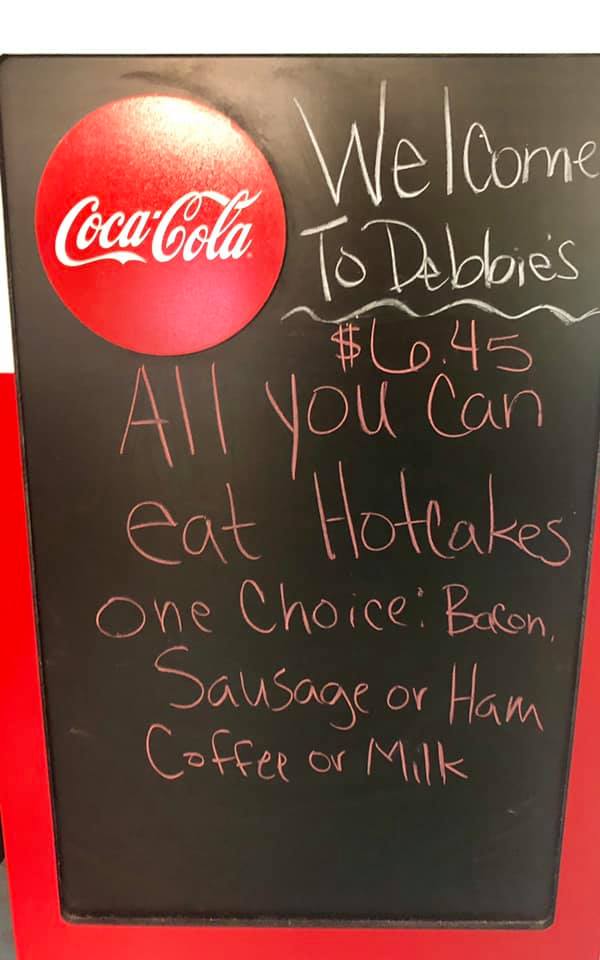 Coca-Cola
Welcome
To Debbie's
$6.45
All you Can
eat Hotcakes
One Choice: Bacon,
Sausage or Ham
Coffee or Milk